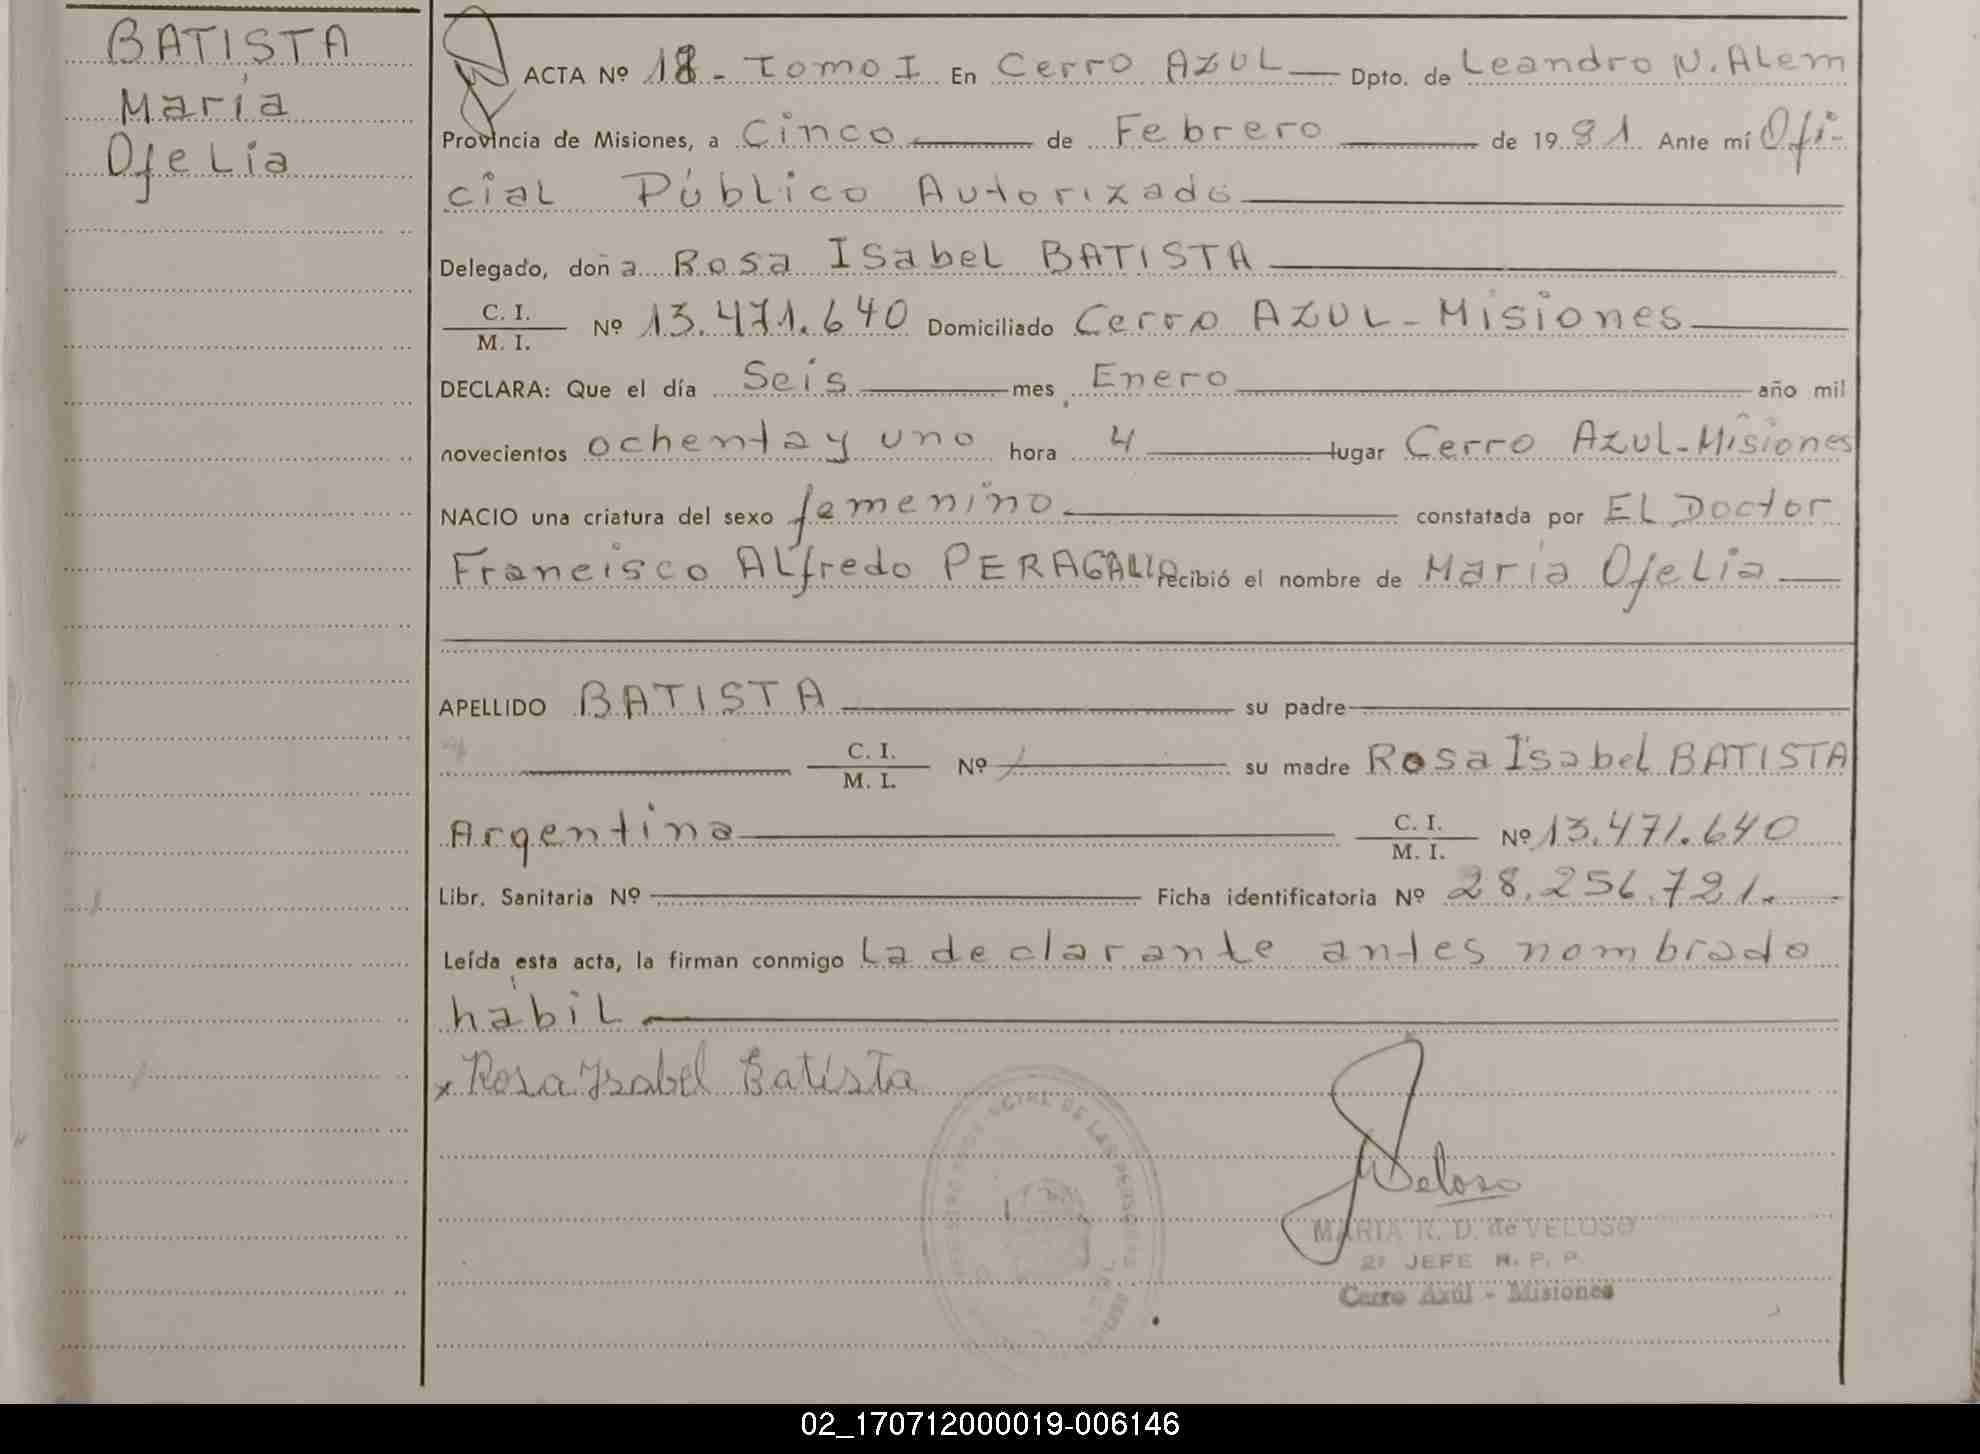 BATISTA
María
Ofelia
ACTA Nº 18 - Tomo I En Cerro AZUL Dpto. de Leandro N. ALem
Provincia de Misiones, a Cinco de Febrero de 1981 Ante mí Ofi-
cial Público Autorizado
Delegado, doña Rosa ISabel BATISTA
C. I.
M. I. Nº 13.471.640 Domiciliado Cerro AZUL - Misiones
DECLARA: Que el día Seis mes Enero año mil
novecientos ochenta y uno hora 4 lugar Cerro Azul - Misiones
NACIO una criatura del sexo femenino constatada por EL Doctor
Francisco ALfredo PERAGALLO recibió el nombre de María Ofelia
APELLIDO BATISTA su padre
C. I.
M. I. Nº su madre Rosa Isabel BATISTA
Argentina C. I.
M. I. Nº 13.471.640
Libr. Sanitaria Nº Ficha identificatoria Nº 28.256.721.
Leída esta acta, la firman conmigo La declarante antes nombrado
hábil
x Rosa Isabel Batista
Veloso
MARIA R. D. de VELOSO
2º JEFE R. P. P.
Cerro Azúl - Misiones
02_170712000019-006146